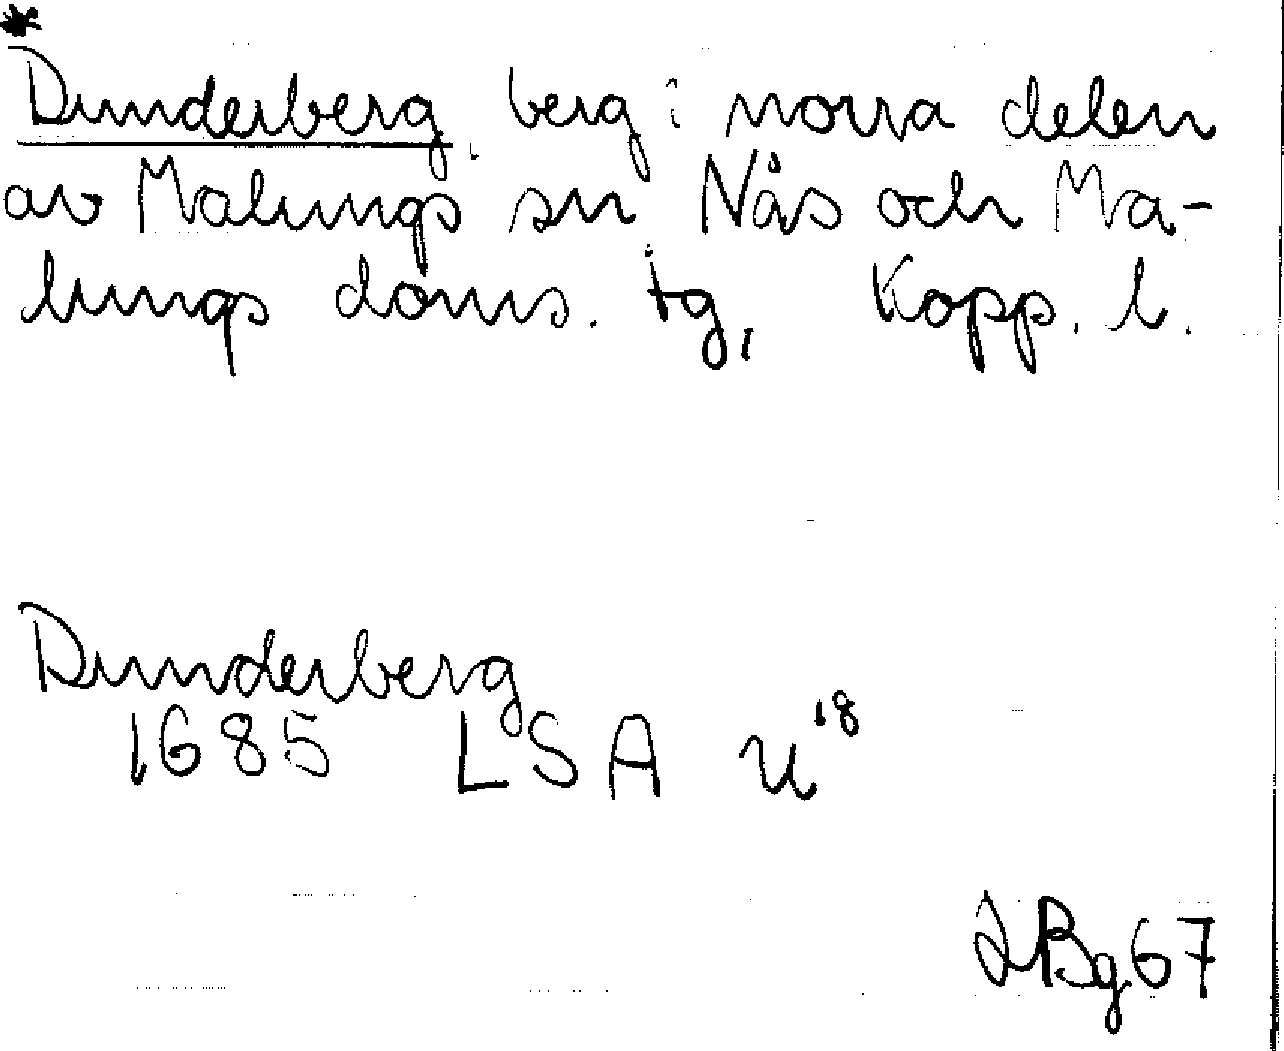 *
Dunderberg, berg i norra delen
av Malungs sn Nås och Ma-
lungs doms. tg, Kopp. l.
Dunderberg
1685 LSA U 18
LBg 67